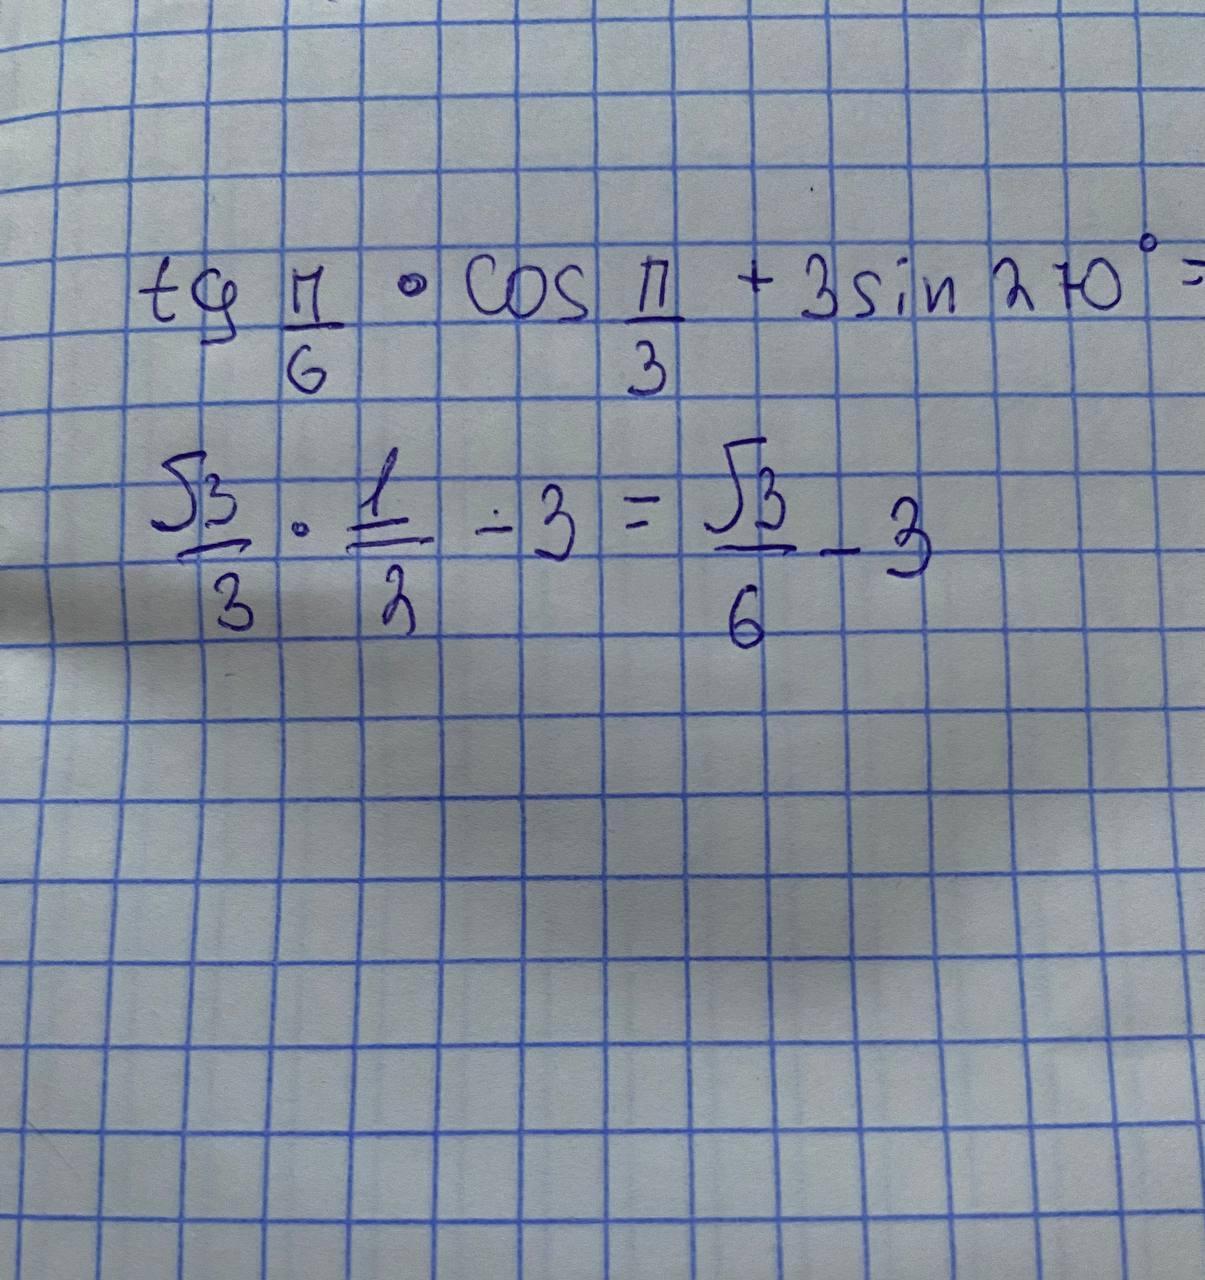 tg π/6 • cos π/3 + 3sin 270° =
√3/3 · 1/2 - 3 = √3/6 - 3